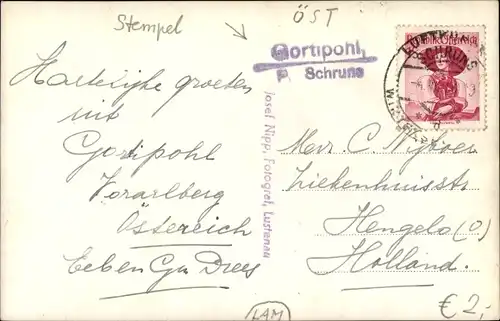 Stempel
ÖST
Gortipohl,
P. Schruns
Hartelijke groeten
uit
Gortipohl
Vorarlberg
Östereich
Josef Nipp, Fotograf, Lustenau
SCHRUNS
Ziekenhuisstr
Hengelo (O)
Holland.
LAM
€ 2,-